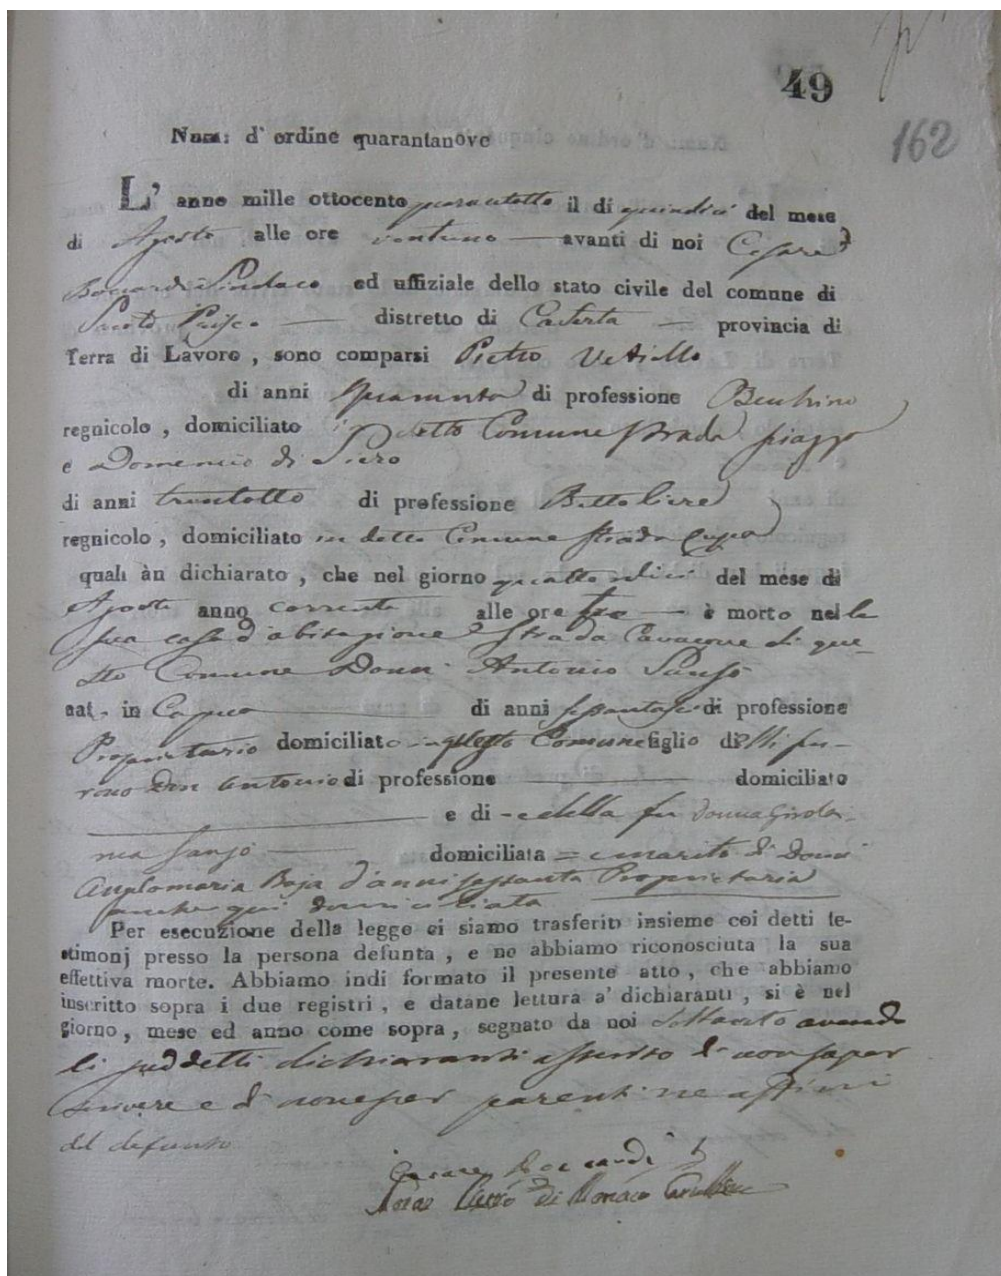 49
162
Num: d' ordine quarantanove
L' anno mille ottocento quarantotto il di quindici del mese
di Agosto alle ore ventuno avanti di noi Cesare
Boccardi Sindaco ed uffiziale dello stato civile del comune di
distretto di Caserta provincia di
Terra di Lavoro, sono comparsi Pietro Vetiello
di anni quaranta di professione
regnicolo, domiciliato in detto Comune strada piazza
e Domenico di Siero
di anni trentotto di professione Bettoliere
regnicolo, domiciliato in detto Comune strada Cupa
quali àn dichiarato, che nel giorno quattordici del mese di
Agosto anno corrente alle ore tre è morto nella
sua casa d'abitazione strada di que-
sto Comune Don Antonio Sansò
nat. in Capua di anni di professione
Proprietario domiciliato in questo Comune figlio di
Don Antonio di professione domiciliato
e di = e della fu Donna Girola-
ma Sansò domiciliata = marito di Donna
Angelamaria Baja d'anni sessanta Proprietaria
anche qui domiciliata
Per esecuzione della legge ci siamo trasferiti insieme coi detti te-
stimonj presso la persona defunta, e ne abbiamo riconosciuta la sua
effettiva morte. Abbiamo indi formato il presente atto, che abbiamo
inscritto sopra i due registri, e datane lettura a' dichiaranti, si è nel
giorno, mese ed anno come sopra, segnato da noi soltanto avendo
li suddetti dichiaranti asserito di non saper
scrivere e di non esser parenti ne affini
del defunto
Cesare Boccardi
di Monaco